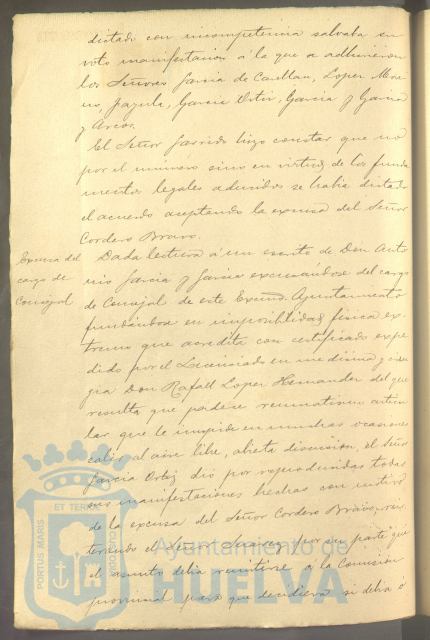 dictado con incompetencia salvaba su
voto manifestacion á la que se adhirieron
los Señores Garcia de Casellan, Lopez More
no, Jazula, Garcia Ortiz, Garcia y Garcia
y Arcos.
El Señor Garrido hizo constar que no
por el número sino en virtud de los funda
mentos legales aducidos se habia dictado
el acuerdo aceptando la excusa del Señor
Cordero Bravo.
Excusa del
cargo de
Concejal
Dada lectura á un escrito de Don Anto
nio Garcia y Garcia excusándose del cargo
de Concejal de este Excmo. Ayuntamiento
fundándose en imposibilidad física ex-
tremo que acredita con certificado expe
dido por el Licenciado en medicina y ciru
gia Don Rafael Lopez Hernandez del que
resulta que padece reumatismo articu
lar que le impide en muchas ocasiones
salir al aire libre, abierta discusion, el Señor
Garcia Ortiz dió por reproducidas todas
sus manifestaciones hechas con motivo
de la excusa del Señor Cordero Bravo,
teniendo el Señor Suarez por su parte que
el asunto debia remitirse a la Comision
provincial para que decidiera si debia ó
PORTUS MARIS
ET TERRAE
CUSTODIA
Ayuntamiento de
HUELVA